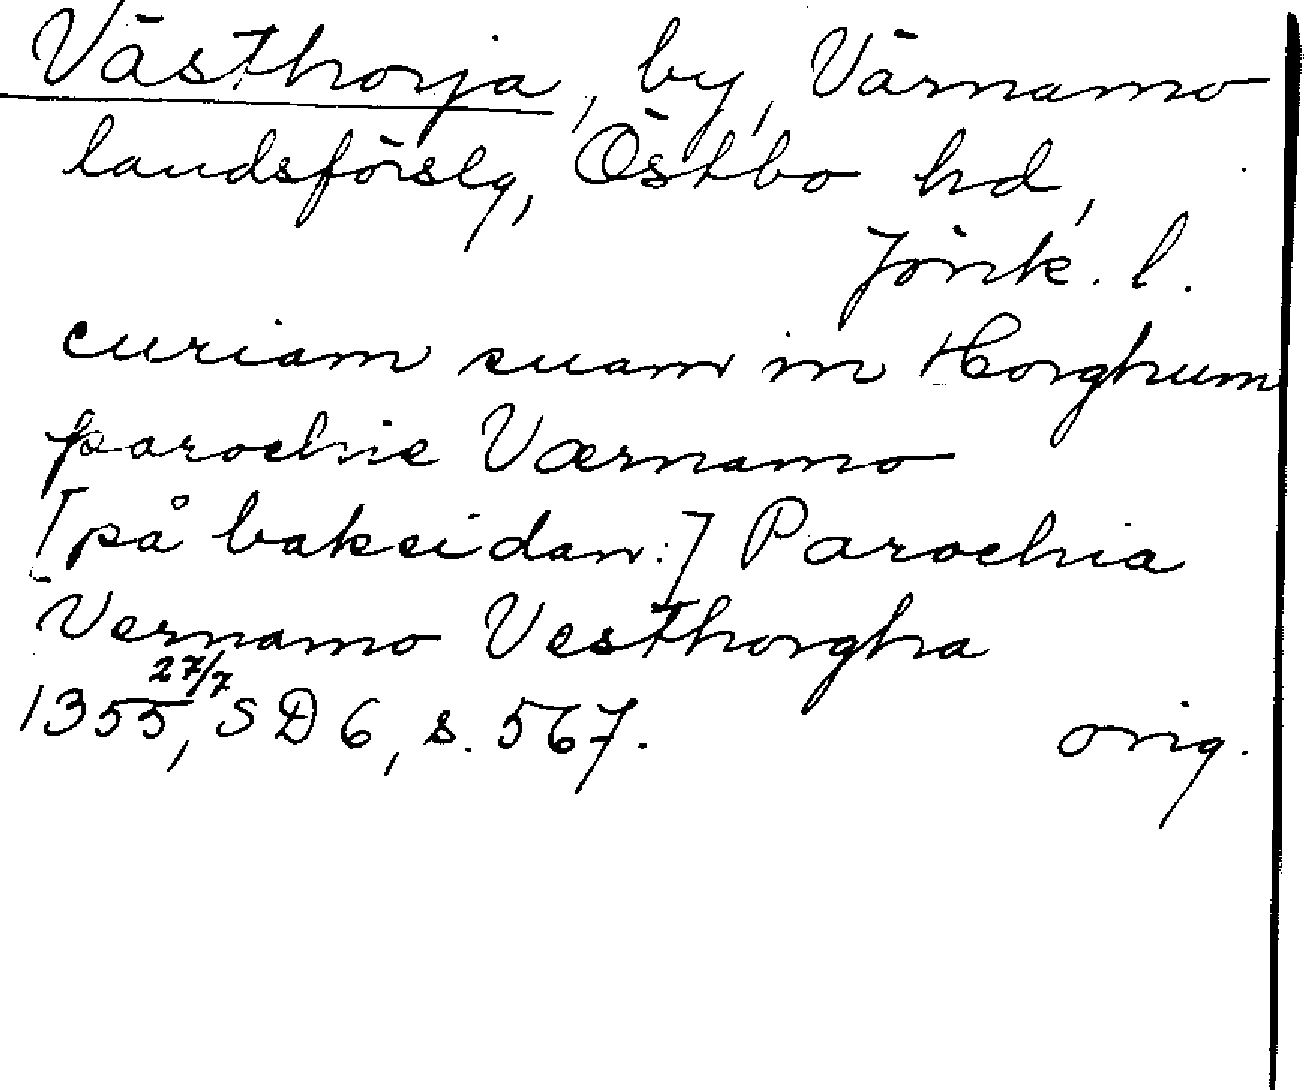 Västhorja, by, Värnamo
landsförslg, Östbo hd,
Jönk. l.
curiam suam in Horghum
parochie Værnamo
[på baksidan:] Parochia
Vernamo Vesthorgha
1355 27/7, SD 6, s. 567. orig.